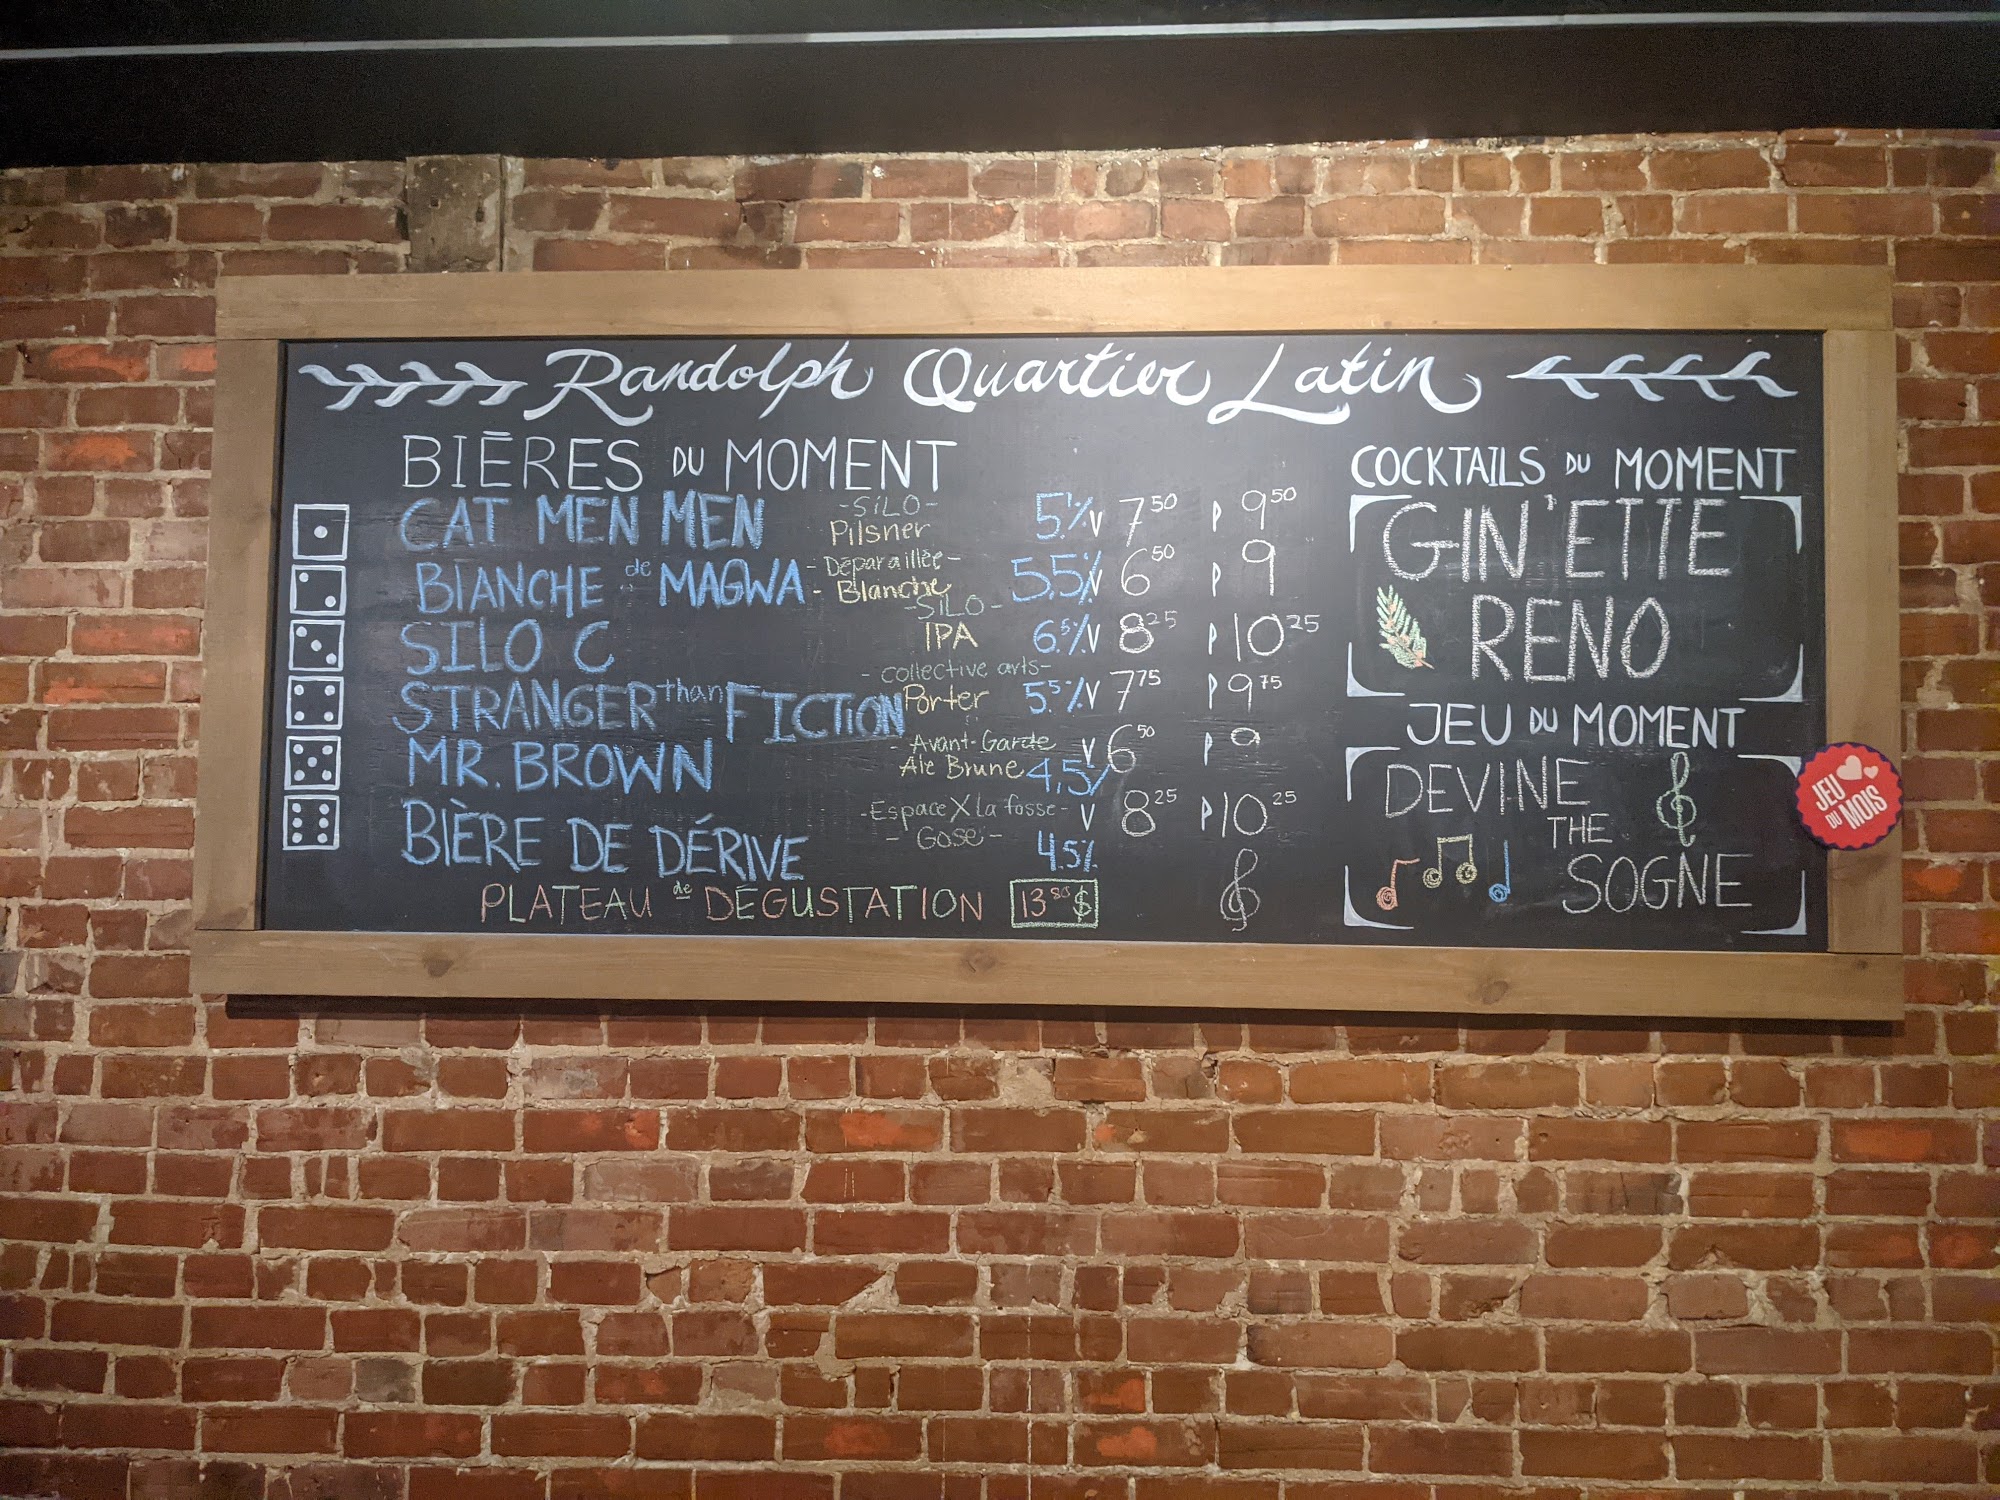 Randolph Quartier Latin
BIÈRES DU MOMENT
CAT MEN MEN -SILO- Pilsner 5% V 7 50 P 9 50
BLANCHE de MAGWA - Dépareillée - Blanche 5.5% V 6 50 P 9
SILO C -SILO- IPA 6.5% V 8 25 P 10 25
STRANGER than FICTION - collective arts- Porter 5.5% V 7 75 P 9 75
MR. BROWN - Avant-Garde Ale Brune 4,5% V 6 50 P 9
BIÈRE DE DÉRIVE -Espace X La fosse- - Gose - 4.5% V 8 25 P 10 25
PLATEAU de DÉGUSTATION 13 50 $
COCKTAILS DU MOMENT
GIN'ETTE
RENO
JEU DU MOMENT
DEVINE
THE
SOGNE
JEU
DU
MOIS